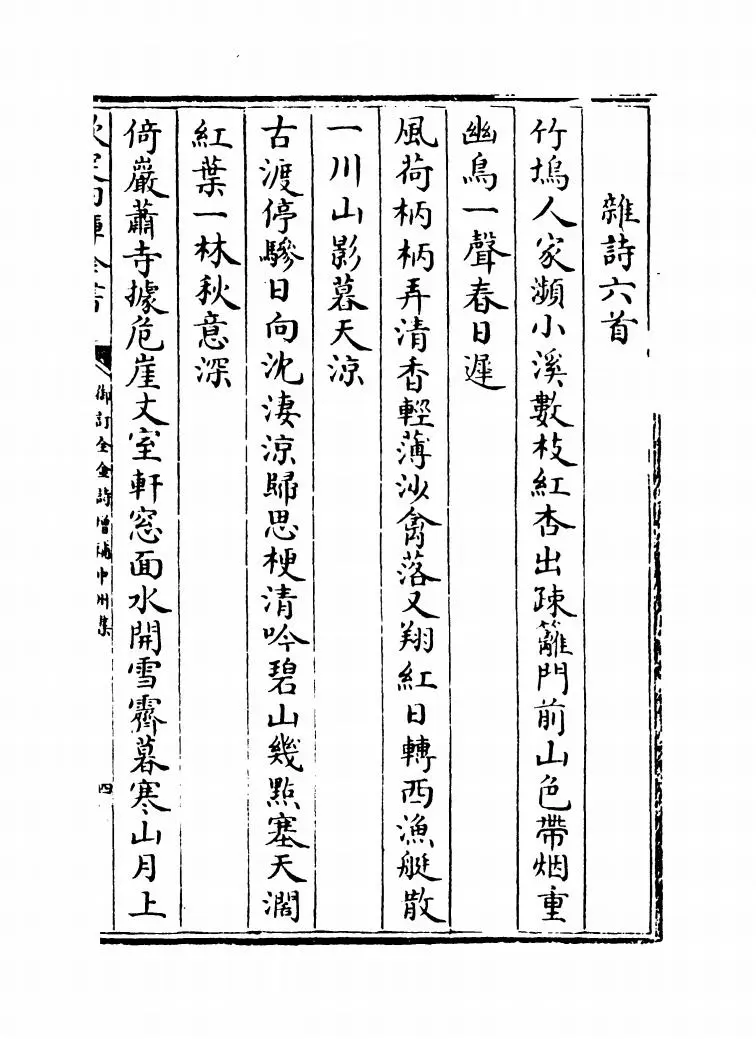 雜詩六首
竹塢人家瀕小溪數枝紅杏出疎籬門前山色帶烟重
幽鳥一聲春日遲
風荷柄柄弄清香輕薄沙禽落又翔紅日轉西漁艇散
一川山影暮天涼
古渡停驂日向沈淒涼歸思梗清吟碧山幾點塞天濶
紅葉一林秋意深
倚巖蕭寺據危崖丈室軒窓面水開雪霽暮寒山月上
御訂全金詩增補中州集
四